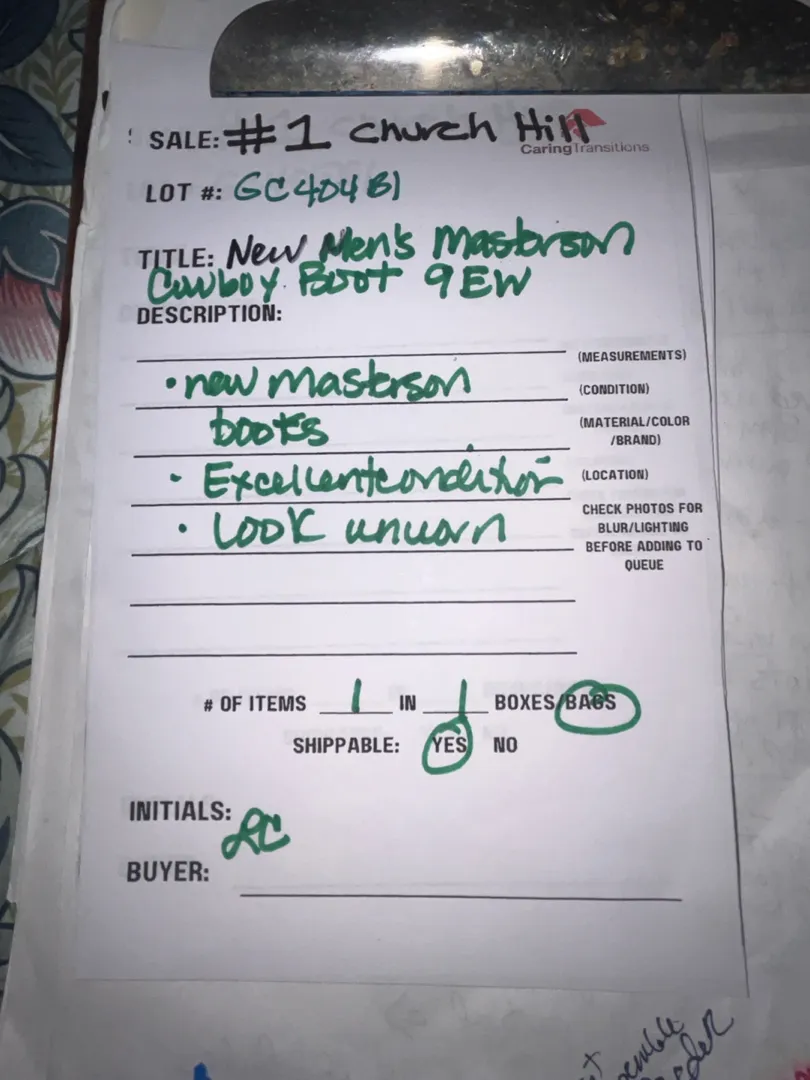 SALE: #1 Church Hill
CaringTransitions
LOT #: GC404B1
TITLE: New Men's Masterson
Cowboy Boot 9EW
DESCRIPTION:
(MEASUREMENTS)
• new Masterson
(CONDITION)
boots
(MATERIAL/COLOR
/BRAND)
• Excellent condition
(LOCATION)
• Look unworn
CHECK PHOTOS FOR
BLUR/LIGHTING
BEFORE ADDING TO
QUEUE
# OF ITEMS 1 IN 1 BOXES/BAGS
SHIPPABLE: YES NO
INITIALS:
BUYER: